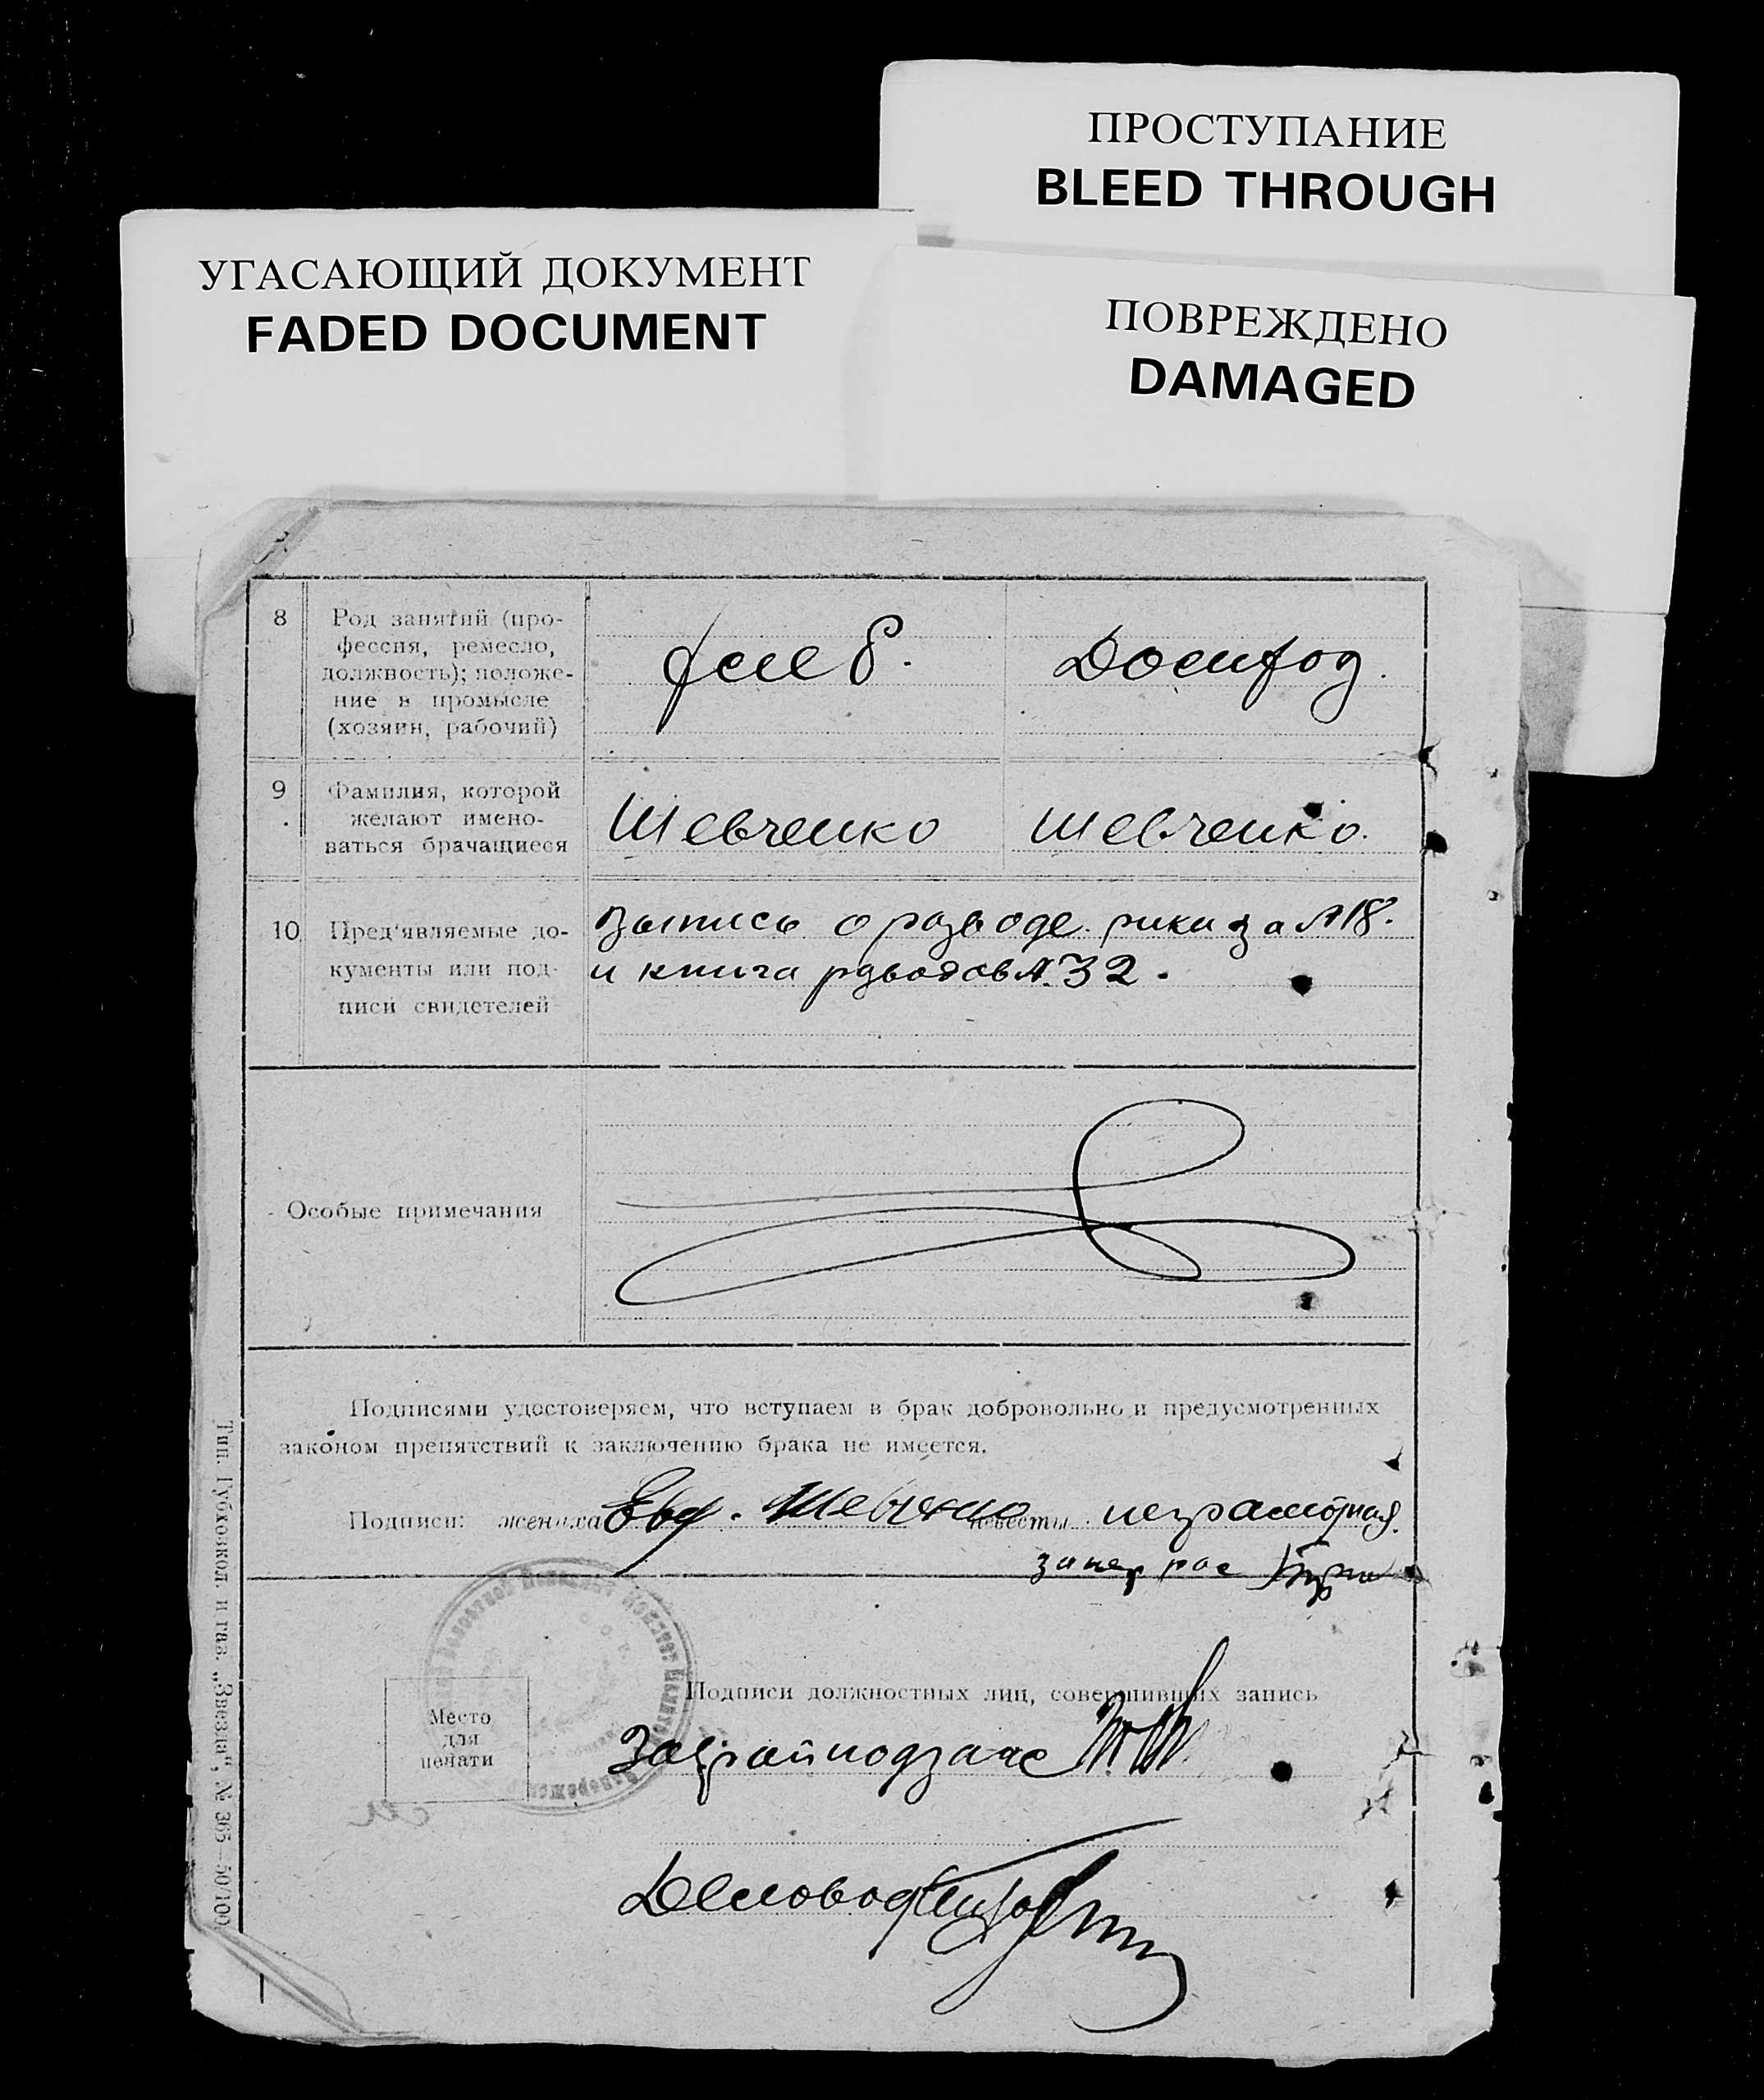 ПРОСТУПАНИЕ
BLEED THROUGH
УГАСАЮЩИЙ ДОКУМЕНТ
FADED DOCUMENT
ПОВРЕЖДЕНО
DAMAGED
8
Род занятий (про-
фессия, ремесло,
должность); положе-
ние в промысле
(хозяин, рабочий)
хлеб.
Домход.
9
Фамилия, которой
желают имено-
ваться брачащиеся
Шевченко
Шевченко.
10
Пред'являемые до-
кументы или под-
писи свидетелей
о разводе за №18.
и книга разводов №32.
Особые примечания
Подписями удостоверяем, что вступаем в брак добровольно и предусмотренных
законом препятствий к заключению брака не имеется.
Подписи: жениха Евд. Шевченко невесты неграмотная.
за нее рос
Подписи должностных лиц, совершивших запись
Место
для
печати
Заврайподзагс
Деловод
Тип. Губкозкол. и газ. „Звезда", № 365—50/100